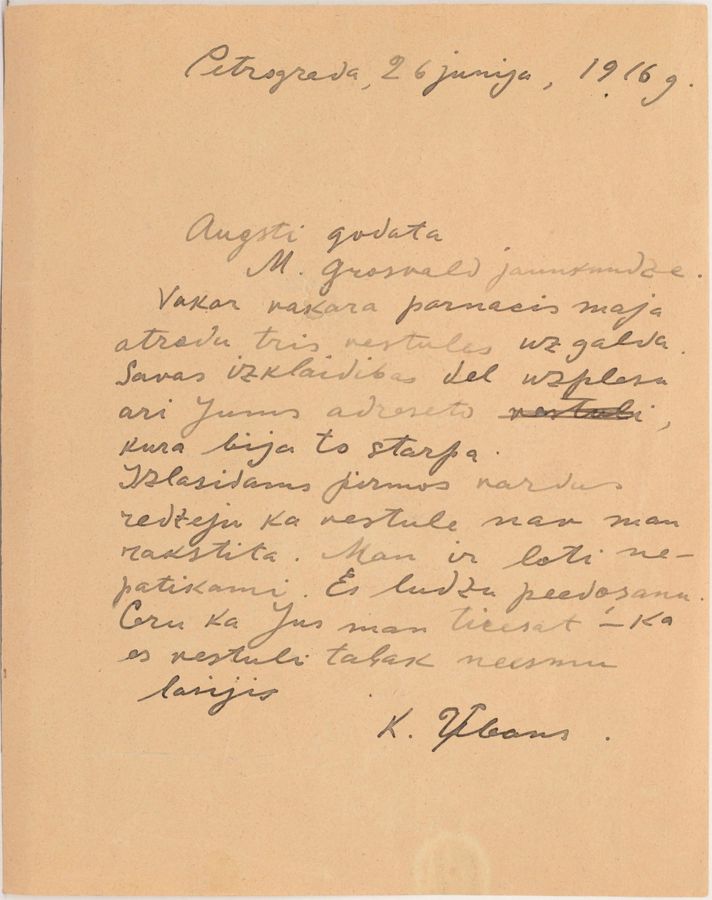 Petrograda, 26 junija, 1916 g.
Augsti godata
M. Grosvald jaunkundze.
Vakar vakara parnacis maja
atrodu tris vestules uz galda.
Savas izklaidibas del uzplesu
ari Jums adreseto vestuli,
kura bija to starpa.
Izlasidams pirmos vardus
redzeju ka vestule nav man
rakstita. Man ir loti ne-
patikami. Es ludzu peedosanu.
Ceru ka Jus man ticesat – ka
es vestuli talak neesmu
lasijis
K. Ubans.